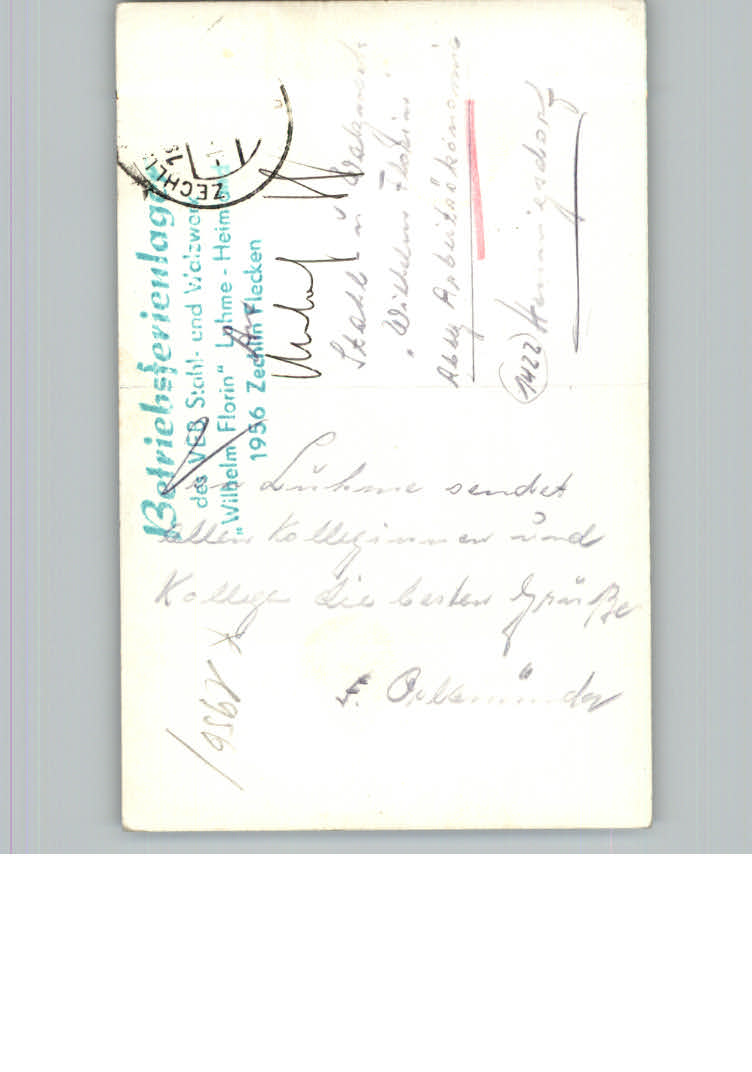 Betriebsferienlager
des VEB Stahl- und Walzwerk
"Wilhelm Florin" Luhme - Heimland
1956 Zechlin Flecken
ZECHLI
An
Stahl u Walzwerk
"Wilhelm Florin"
Arbeitsökonomie
1422 Hennigsdorf
Luhme sendet
allen Kolleginnen und
Kollegen die besten Grüße
1956